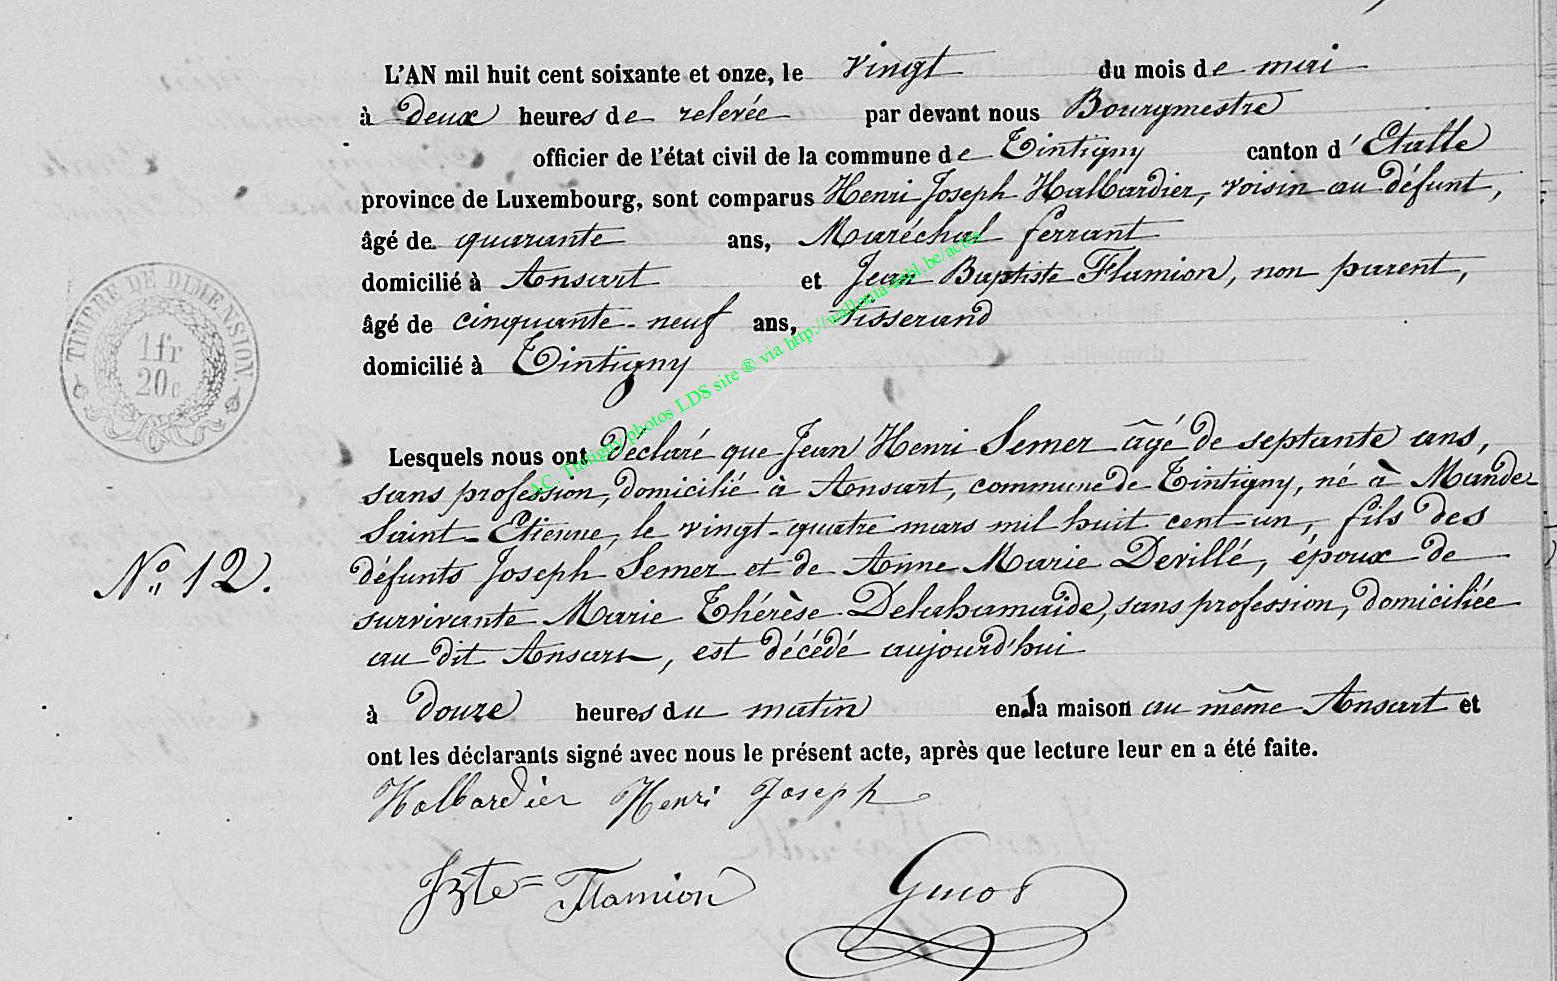 L'AN mil huit cent soixante et onze, le vingt du mois de mai
à deux heures de relevée par devant nous Bourgmestre
officier de l'état civil de la commune de Tintigny canton d'Etalle
province de Luxembourg, sont comparus Henri Joseph Halbardier, voisin au défunt,
âgé de quarante ans, Maréchal ferrant
domicilié à Ansart et Jean Baptiste Flamion, non parent,
âgé de cinquante-neuf ans, Tisserand
domicilié à Tintigny
TIMBRE DE DIMENSION.
1fr
20c
AC. Tintigny photos LDS site ® via http://wallonia-asbl.be/actes
Lesquels nous ont déclaré que Jean Henri Semer âgé de septante ans,
sans profession, domicilié à Ansart, commune de Tintigny, né à Mande
Saint-Etienne, le vingt-quatre mars mil huit cent-un, fils des
N° 12.
défunts Joseph Semer et de Anne Marie Devillé, époux de
survivante Marie Thérèse Delahamaide, sans profession, domiciliée
au dit Ansart, est décédé aujourd'hui
à douze heures du matin en sa maison au même Ansart et
ont les déclarants signé avec nous le présent acte, après que lecture leur en a été faite.
Halbardier Henri Joseph
JBte Flamion